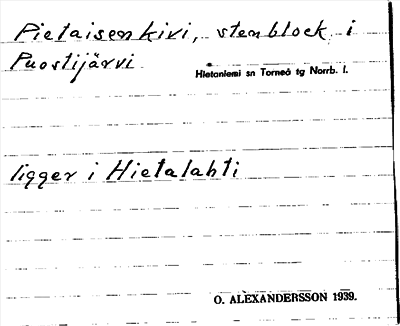 Pietaisenkivi, stenblock i
Puostijärvi
Hietaniemi sn Torneå tg Norrb. l.
ligger i Hietalahti
O. ALEXANDERSSON 1939.